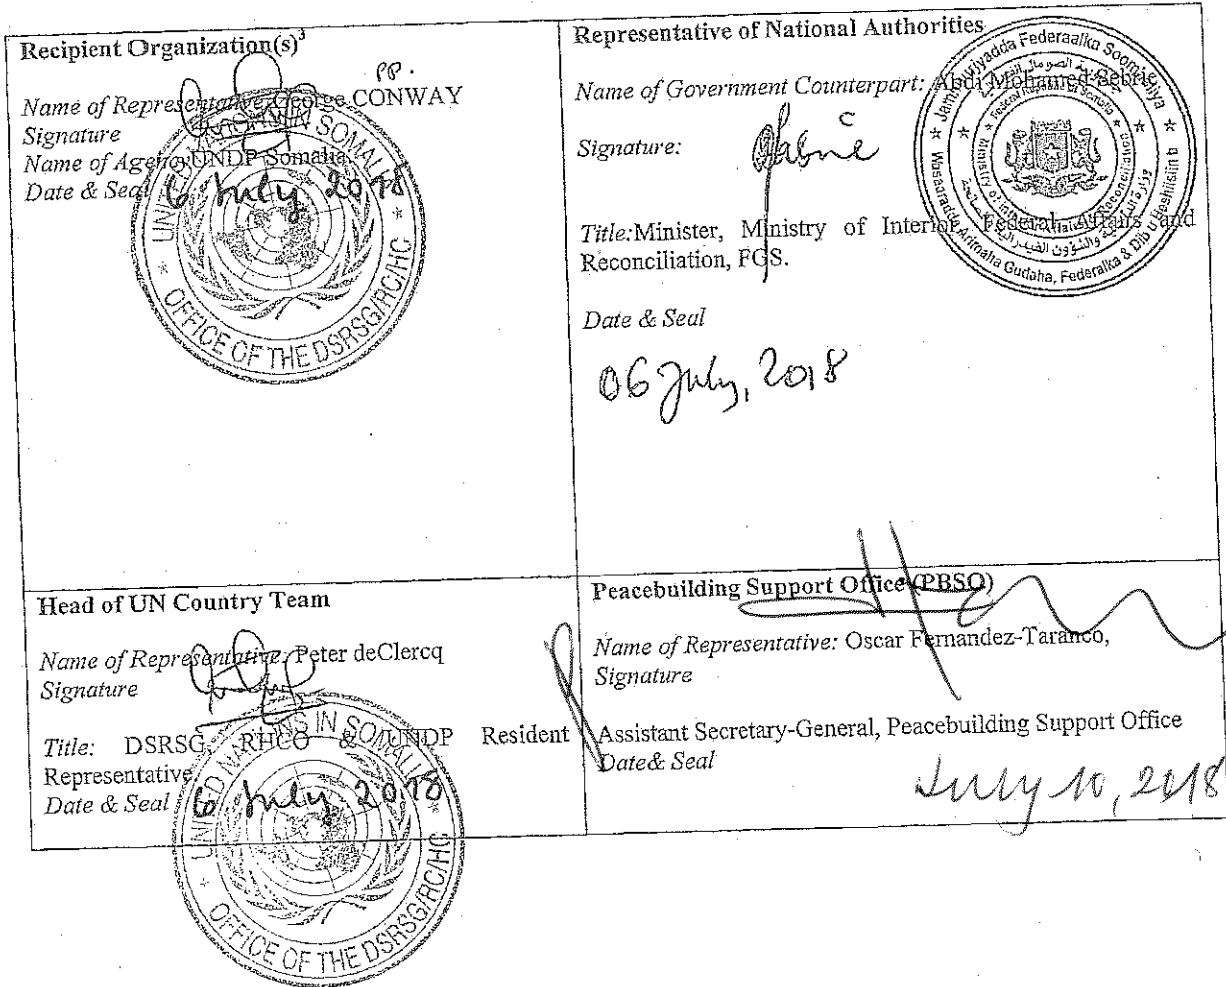 Recipient Organization(s)³
pp.
Name of Representative: George CONWAY
Signature
Name of Agency: UNDP Somalia
Date & Seal 6 July 2018
UNITED NATIONS IN SOMALIA
OFFICE OF THE DSRSG/RC/HC
Representative of National Authorities
Name of Government Counterpart: Abdi Mohamed Sebrie
Signature: Sabrie
Title:Minister, Ministry of Interior, Federal Affairs and
Reconciliation, FGS.
Date & Seal
06 July, 2018
Jamhuuriyadda Federaalka Soomaaliya
Wasaaradda Arimaha Gudaha, Federalka & Dib u Heshiisiin
Head of UN Country Team
Name of Representative: Peter deClercq
Signature
Title: DSRSG, RHCO & UNDP Resident
Representative
Date & Seal 6 July 2018
UNITED NATIONS IN SOMALIA
OFFICE OF THE DSRSG/RC/HC
Peacebuilding Support Office (PBSO)
Name of Representative: Oscar Fernandez-Taranco,
Signature
Assistant Secretary-General, Peacebuilding Support Office
Date& Seal
July 10, 2018